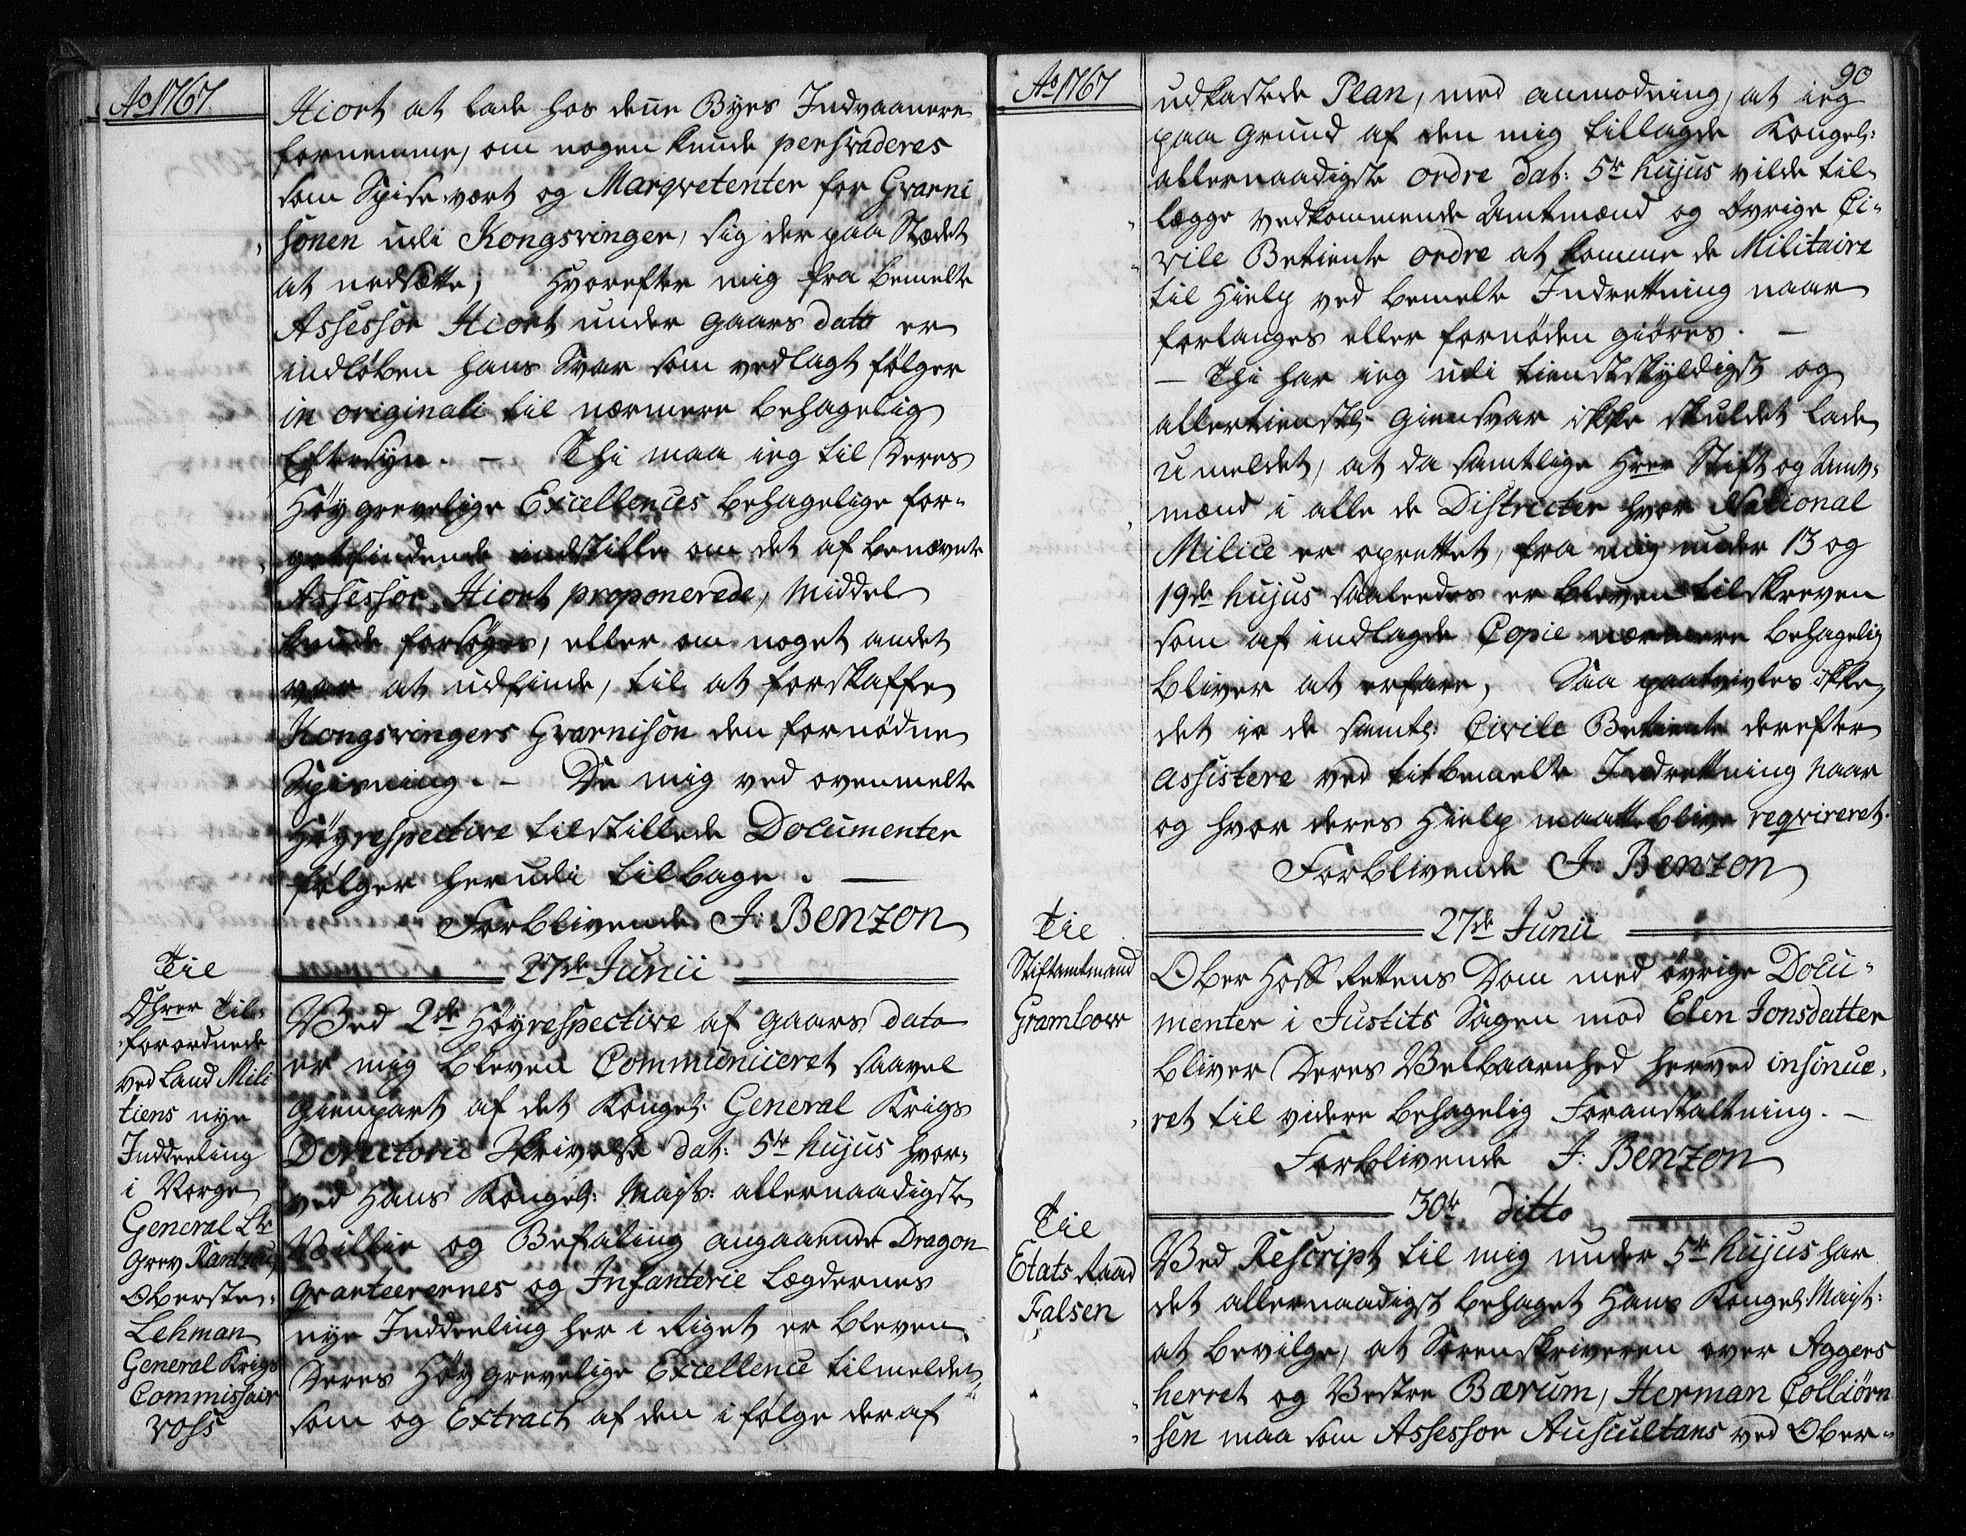 Ao 1767.
Hiort at lade hos denne Byes Indvaanere
fornemme, om nogen kunde persvaderes
som Spise-vært og Marqvetenter for Gvarni
sonen udi Kongsvinger, sig der paa Stædet
at nedsætte; Hvorefter mig fra bemelte
Assessor Hiort under Gaars dato er
indløben hans Svar som vedlagt følger
in originali til nærmere behagelig
Eftersyn. – Thi maa ieg til Deres
Høygrevelige Excellences behagelige for-
gotfindende indstille om det af benævnte
Assessor Hiort proponerede, Middel
kunde forsøges, eller om noget andet
var at udfinde, til at forskaffe
Kongsvingers Gvarnison den fornødne
Spisning. – De mig ved ovenmelte
Høyrespective tilstillede Documenter
følger herudi tilbage. –
Forblivende J: Benzon
Til
Dhrer Til-
forordnede
ved Land Mili
tiens nye
Inddeeling
i Norge
General Lt
Grev Rantzau
Obersten
Lehman
General Krigs
Commissair
Voss
27de Junii
Ved 2de Høyrespective af Gaars dato
er mig bleven Communiceret saavel
Gienpart af det Kongel: General Krigs
Directorii Skrivelse dat: 5te hujus hvor-
ved Hans Kongel: Mayts: allernaadigste
Villie og Befaling angaaende Dragon
Qvarteerernes og Infanterie Lægdernes
nye Inddeeling her i Riget er bleven
Deres Høygrevelige Excellence tilmeldet
som og Extract af den i følge deraf
Ao 1767
90
udkastede Plan, med anmodning, at ieg
paa Grund af den mig tillagde Kongel:
allernaadigste ordre dat: 5te hujus vilde til-
lægge vedkommende Amtmænd og øvrige Ci-
vile Betiente ordre at komme de Militaire
til Hielp ved bemelte Indrettning naar
forlanges eller fornøden giøres. –
– Thi har ieg udi tienstskyldigst og
allertienstl: Giensvar ikke skuldet lade
umeldet, at da samtlige Hrer Stift og Amt-
mænd i alle de Districter hvor National
Milice er oprettet, fra mig under 13 og
19de hujus saaledes er bleven tilskreven
som af indlagde Copie nærmere behagelig
bliver at erfare, Saa paatvivles ikke,
det io de samtl: Civile Betiente derefter
assistere ved titbemelte Indrettning naar
og hvor deres Hielp maatte blive reqvireret.
Forblivende J: Benzon
Til
Stiftamtmand
Grambow
27de Junii
Ober Hoff Rettens Dom med øvrige Docu-
menter i Justits Sagen mod Elen Jonsdatter
bliver Deres Velbaarnhed herved insinue-
ret til videre behagelig Foranstaltning. –
Forblivende J: Benzon
Til
Etats Raad
Falsen
30te ditto
Ved Rescript til mig under 5te hujus har
det allernaadigst behaget Hans Kongel: Mayt:
at bevilge, at Sorenskriveren over Aggers
herret og Vestre Bærum, Herman Colbiørn
sen maa som Assessor Auscultans ved Ober-